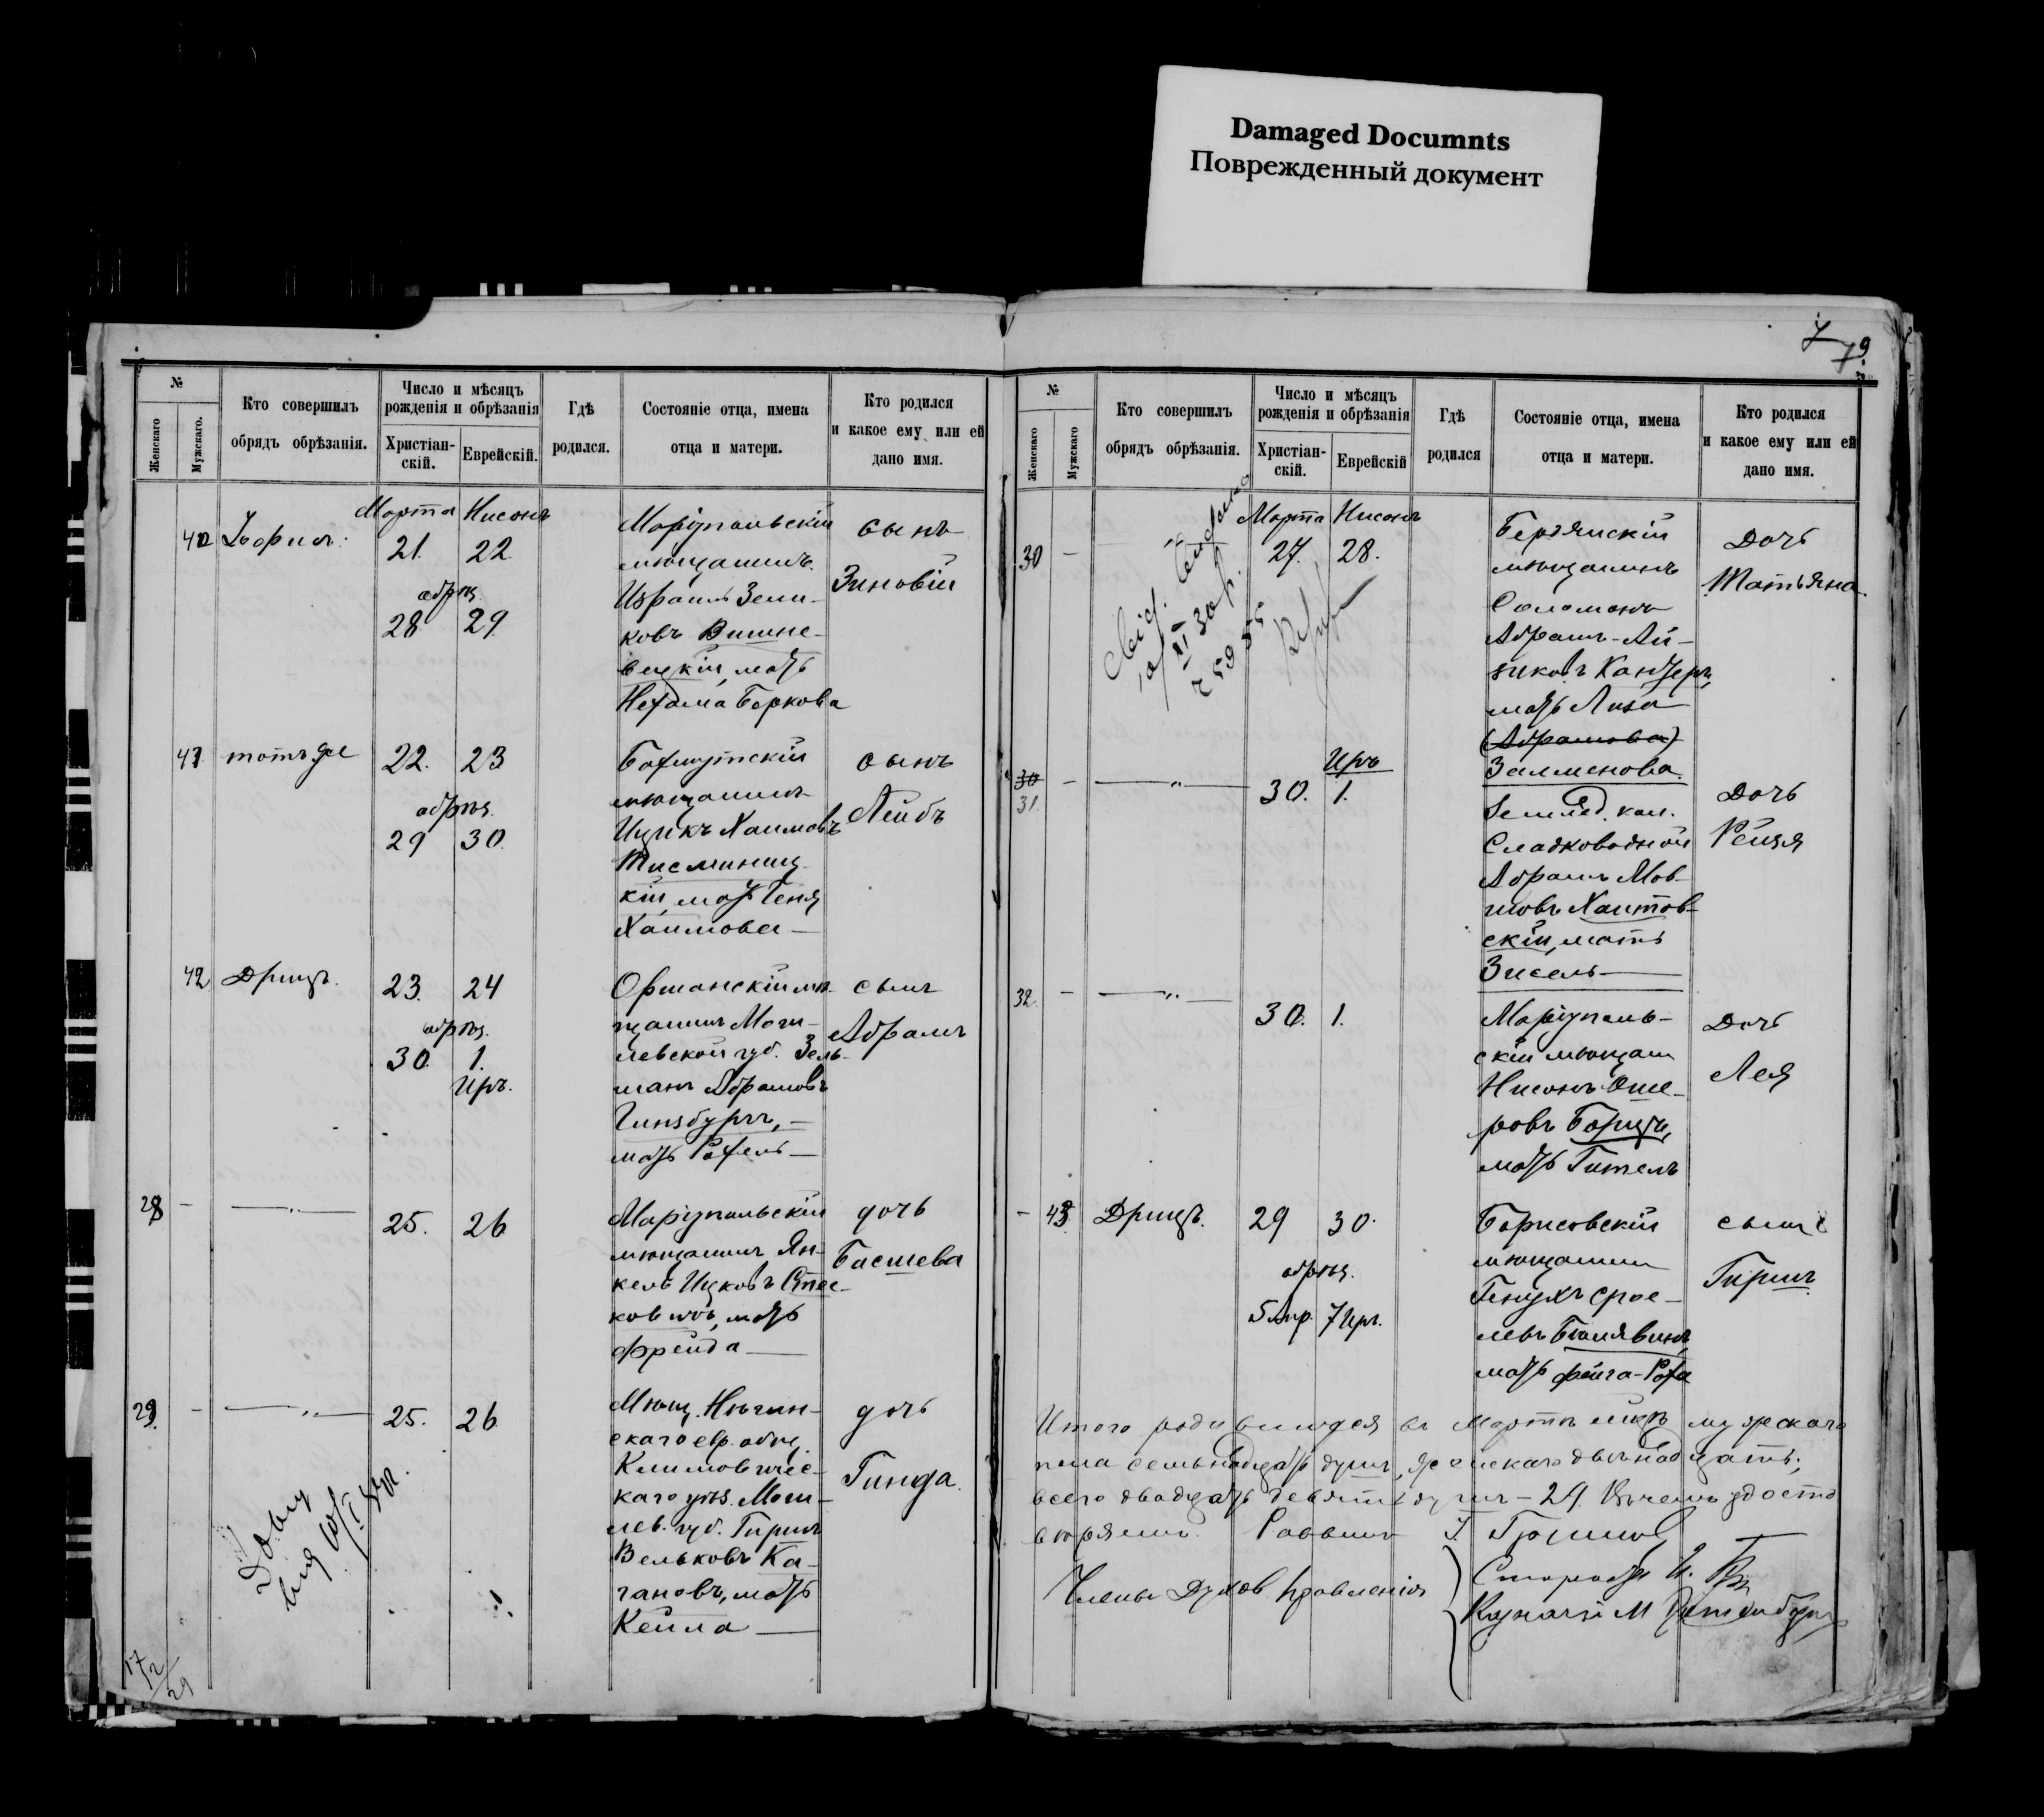 Damaged Documnts
Поврежденный документ
79
№
Женскаго
Мужскаго.
Кто совершилъ
обрядъ обрѣзанія.
Число и мѣсяцъ
рожденія и обрѣзанія
Христіан-
скій.
Еврейскій.
Гдѣ
родился.
Состояніе отца, имена
отца и матери.
Кто родился
и какое ему или ей
дано имя.
Марта Нисонъ
21. 22.
обрѣз.
28 29.
Маріупольскій
мѣщанинъ
Израиль Зели-
ковъ Вишне-
вецкій, мать
Нехама Беркова
сынъ
Зиновій
41 тотъ же
22. 23
обрѣз.
29 30.
Бахмутскій
мѣщанинъ
Ицикъ Хаимовъ
Тисминиц-
кій, мать Геня
Хаимова
сынъ
Лейбъ
42 Дрицъ.
23. 24
обрѣз.
30. 1.
Иръ.
Оршанскій мѣ-
щанинъ Моги-
левской губ. Зель-
манъ Абрамовъ
Гинзбургъ,
мать Рохель
сынъ
Абрамъ
28 - — " —
25. 26
Маріупольскій
мѣщанинъ Ян-
кель Ицковъ
мать
Фрейда
дочь
Басшева
29. - — " —
25. 26
Мѣщ.
скаго евр. общ.
Климовичес-
каго уѣз. Моги-
лев. губ. Гиршъ
Вельковъ Ка-
гановъ, мать
Кейла
дочь
Гинда.
17
12
29
№
Женскаго
Мужскаго
Кто совершилъ
обрядъ обрѣзанія.
Число и мѣсяцъ
рожденія и обрѣзанія
Христіан-
скій.
Еврейскій
Гдѣ
родился
Состояніе отца, имена
отца и матери.
Кто родился
и какое ему или ей
дано имя.
Марта Нисонъ
30 -
27. 28.
Бердянскій
мѣщанинъ
Соломонъ
Абрамъ-Ай-
зиковъ Канторъ,
мать Лиза
(Абрамова)
Залменова.
Дочь
Татьяна.
30
31. - — " —
Иръ
30. 1.
Землед. кол.
Сладководной
Абрамъ Мов-
шовъ Хаитов-
скій, мать
Зисель
Дочь
Рейзя
32. - — " —
30. 1.
Маріуполь-
скій мѣщан
Нисонъ Оше-
ровъ Борицъ,
мать Гитель
Дочь
Лея
- 43. Дрицъ.
29 30.
обрѣз.
5 Апр. 7 Иръ.
Борисовскій
мѣщанинъ
Генухъ Срое-
левъ Белявинъ,
мать Фейга-Роха
сынъ
Гиршъ
Итого родившихся въ Мартѣ мѣс. мужскаго
пола семьнадцать душъ, женскаго двѣнадцать,
всего двадцать девять душъ - 29. Въ чемъ удосто-
вѣряемъ. Раввинъ
Члены Духов. Правленія
Староста И.
Казначей М